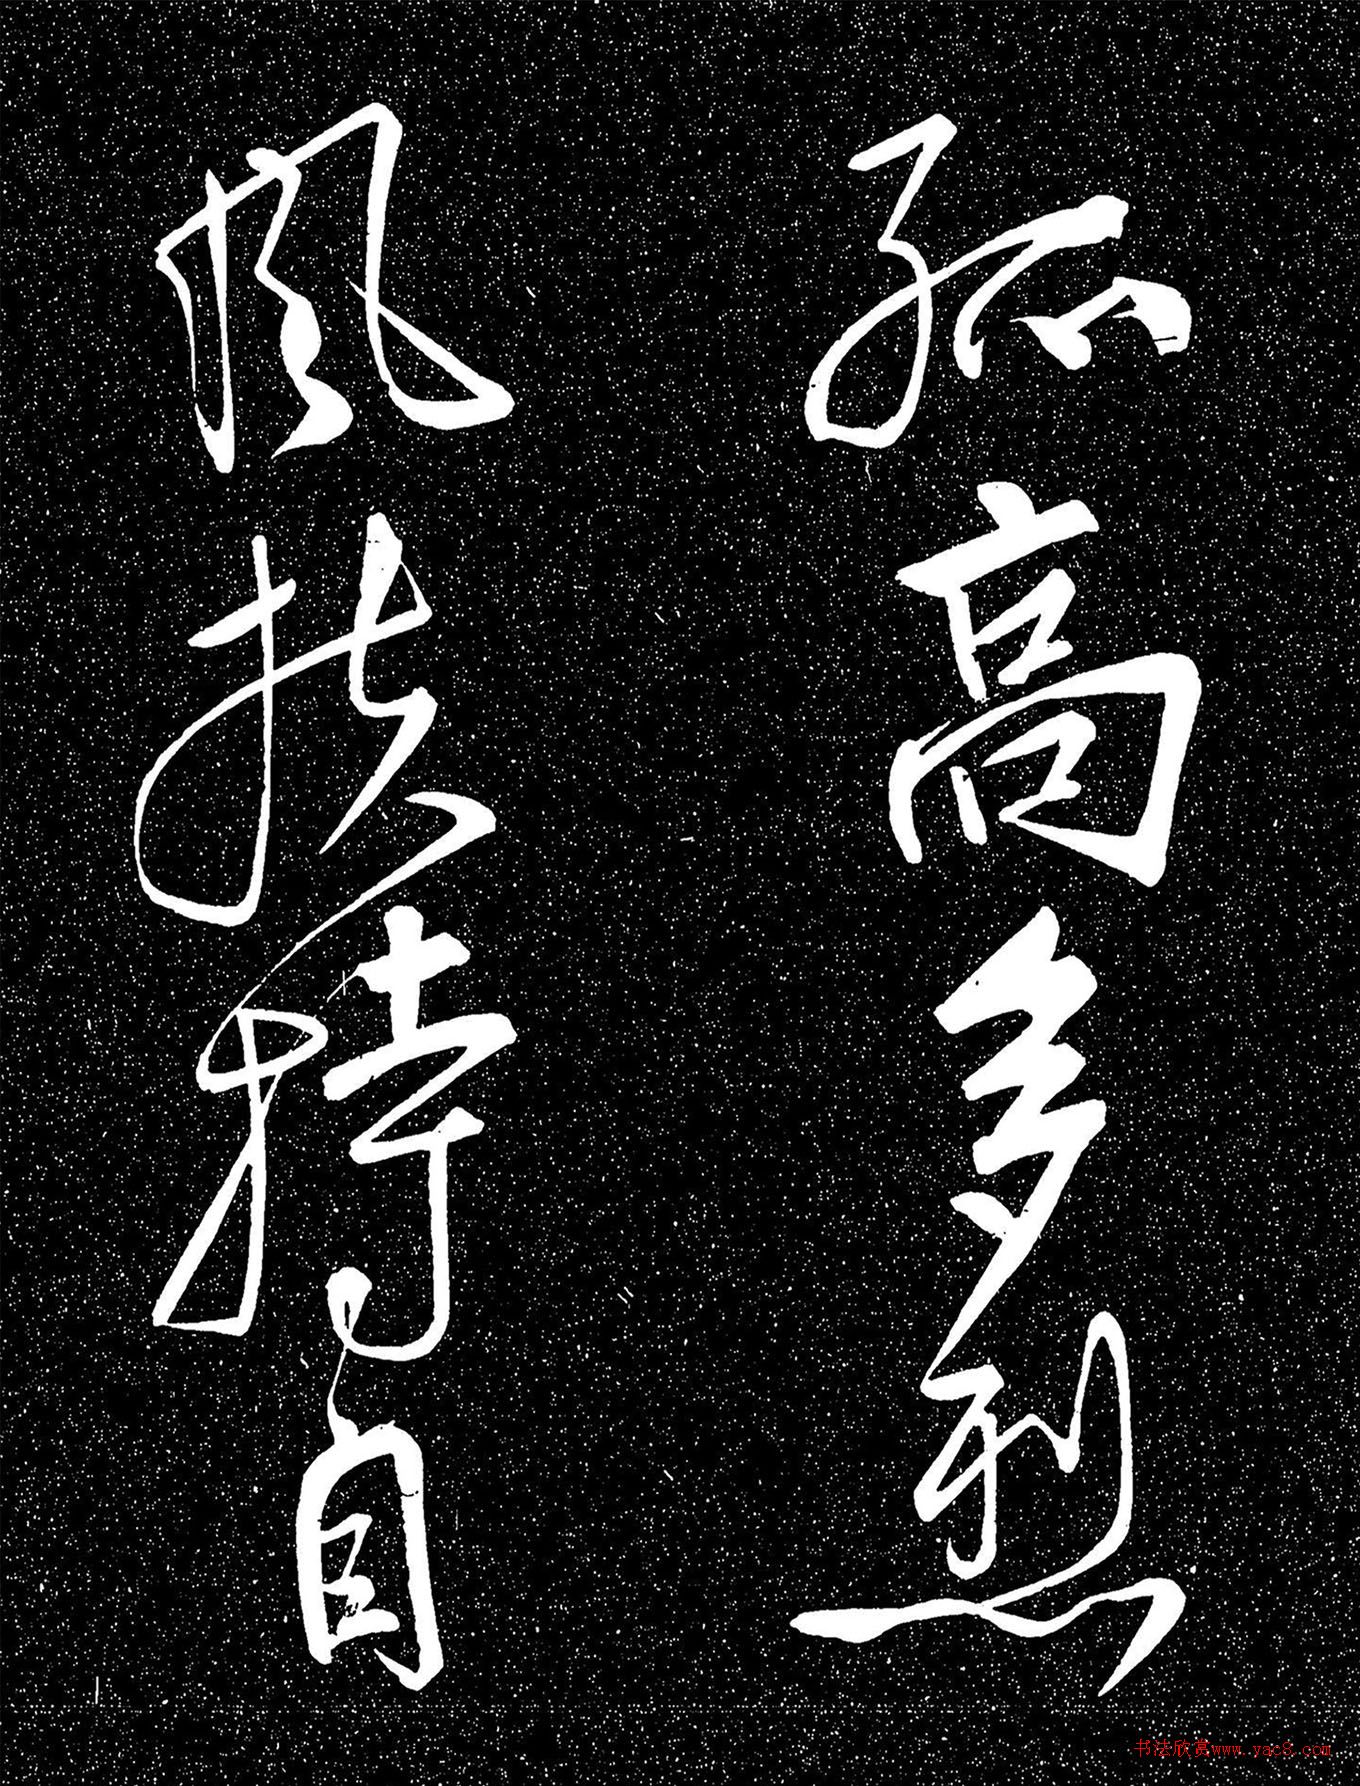 孤高多烈
風扶持自
书法欣赏www.yac8.com